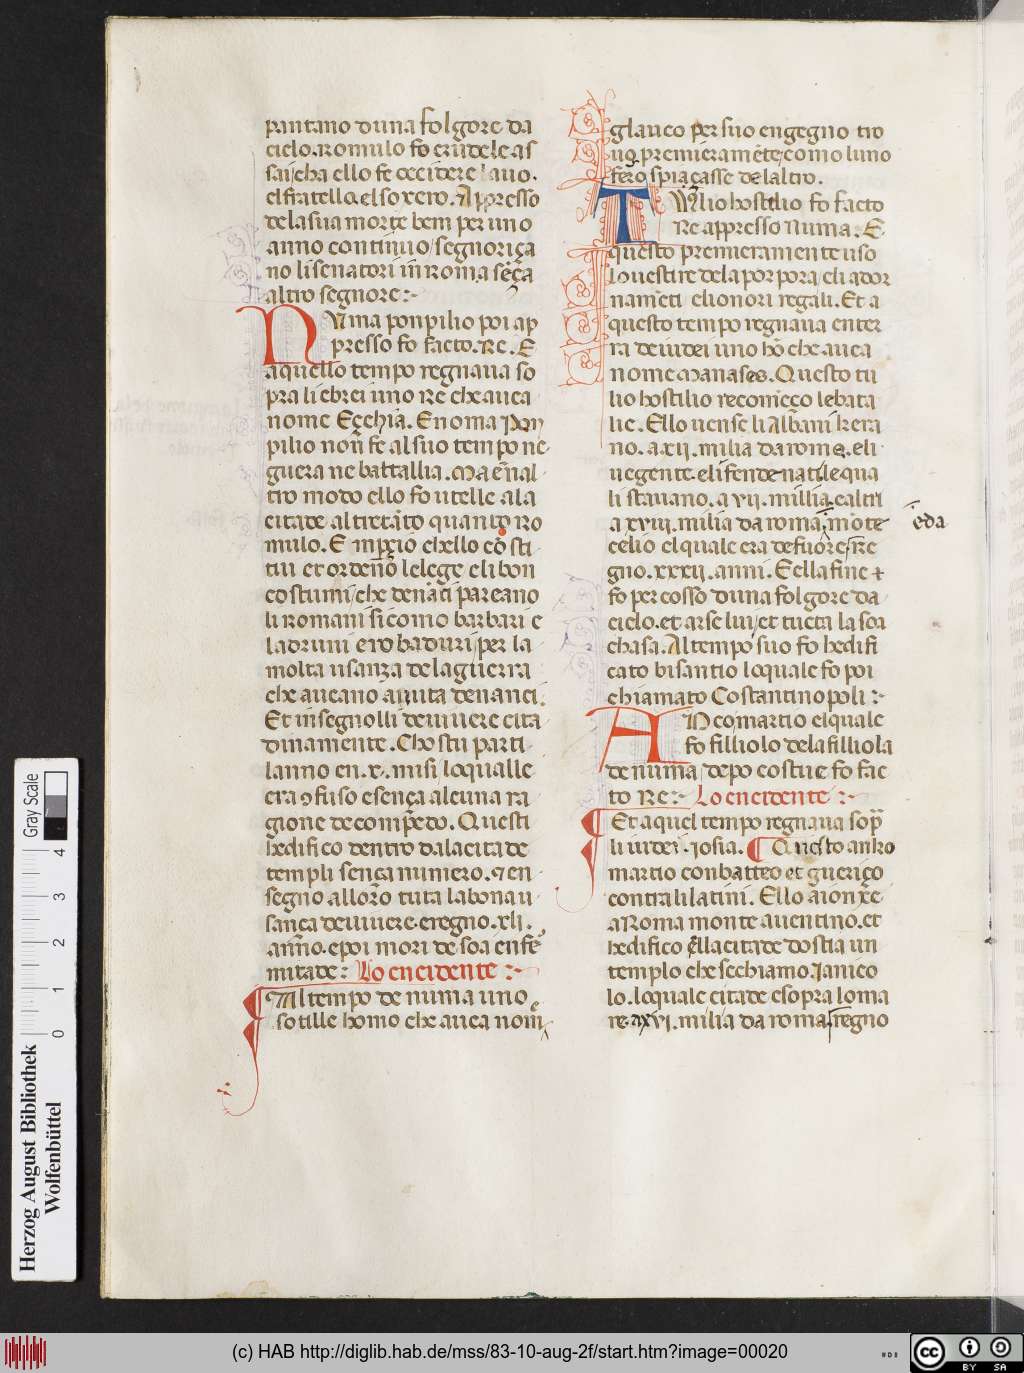 pantano duna folgore da
cielo. romulo fo crudele as
sai cha ello fe occidere lauo.
el fratello. el soxero. Appresso
dela sua morte bem per uno
anno continuo segnoriça
no li senatori in roma sēça
altro segnore:-
NUma ponpilio poi ap
presso fo facto. Re. E
aquello tempo regnaua so
pra li ebrei uno Re che auea
nome Eçechia. E noma Pon
pilio non fe al suo tempo ne
guera ne battallia. Ma en al
tro modo ello fo utelle ala
citade altretāto quanto Ro
mulo. E inpꝛio ch ello cōsti
tui et ordenō le lege e li bon
costumi/che denāci pareano
li romani si como barbari e
ladruni e robaduri/per la
molta usanza dela guerra
che aueano auuta denanci.
Et insegnolli de uiuere cita
dinamente. Cho stu parti
lanno en .x. misi loqualle
era ꝯfuso e sença alcuna ra
gione de compēdo. Questi
hedifico dentro dala citade
templi sença numero. ⁊ en
segno alloro tuta la bona u
sança de uiuere. e regno .xli.
anno. e poi mori de soa enfē
mitade: Lo encidente :-
Al tempo de numa uno
sotille homo che auea nom̄
glauco per suo engegno tro
uo premieramēte/como luno
fero spiacasse delaltro.
TUlio hostilio fo facto
Re appresso Numa. E
questo premieramente uso
lo uestire dela porpora/eli ador
namēti eli onori regali. Et a
questo tempo regnaua enter
ra de iudei uno hō che auea
nome Manases. Questo tu
lio hostilio recomēço le bata
lie. Ello uense li Albani kera
no. a xii. milia da roma. e li
uegente. e li fendenati le qua
li stauano. a vii. millia. e altri
a xviii. milia da roma, mōte
eda
celio elquale era de fuore/Re
gno .xxxii. anni. E ella fine +
fo percosso duna folgore da
cielo. et arse lui/et tucta la soa
chasa. Al tempo suo fo hedifi
cato bisantio loquale fo poi
chiamato Costantinopoli:-
ANcomartio elquale
fo filliolo dela filliola
de numa/depo costue fo fac
to Re:- Lo encidente :-
Et aquel tempo regnaua sopra
li iudei. iosia. Questo anko
martio conbatteo et gueriço
contra li latini. Ello aionxe
a Roma monte auentino. et
hedifico ella citade dostia un
templo che se chiamo. Janico
lo. loquale citade e sopra loma
re. a xvi. milia da roma. regno
Gray Scale
4
3
2
1
0
Herzog August Bibliothek
Wolfenbüttel
(c) HAB http://diglib.hab.de/mss/83-10-aug-2f/start.htm?image=00020
cc
BY SA